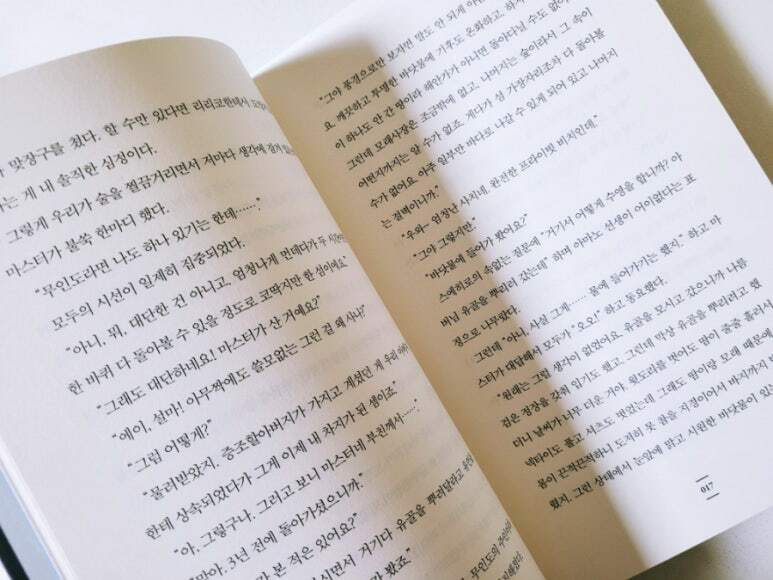 맞장구를 쳤다. 할 수만 있다면 리리코한테서
는 게 내 솔직한 심정이다.
그렇게 우리가 술을 찔끔거리면서 저마다 생각에 잠겨
마스터가 불쑥 한마디 했다.
"무인도라면 나도 하나 있기는 한데……."
모두의 시선이 일제히 집중되었다.
"아니, 뭐, 대단한 건 아니고, 엄청나게 먼데다가 두 시간이면
한 바퀴 다 돌아볼 수 있을 정도로 코딱지만 한 섬이에요."
"그래도 대단하네요! 마스터가 산 거예요?"
"에이, 설마! 아무짝에도 쓸모없는 그런 걸 왜 사나?"
"그럼 어떻게?"
"물려받았지. 증조할아버지가 가지고 계셨던 게 우리
한테 상속되었다가 그게 이제 내 차지가 된 셈이죠."
"아, 그렇구나. 그러고 보니 마스터네 부친께서……."
"맞아. 3년 전에 돌아가셨으니까."
본 적은 있어요?"
시면서 거기다 유골을 뿌려달라고
봤죠."
"그야 풍경으로만 보자면 말도 안 되게
요. 깨끗하고 투명한 바닷물에 기후도 온화하고. 하지
이 하나도 안 간 땅이라 해안가가 아니면 돌아다닐 수도 없어
그런데 모래사장은 조금밖에 없고, 나머지는 숲이라서 그 속이
어떤지까지는 알 수가 없죠. 게다가 섬 가장자리조차 다 돌아볼
수가 없어요. 아주 일부만 바다로 나갈 수 있게 되어 있고 나머지
는 절벽이니까."
"우와~ 엄청난 사치네, 완전한 프라이빗 비치인데."
"그야 그렇지만."
"바닷물에 들어가 봤어요?"
스에히로의 속없는 질문에 "거기서 어떻게 수영을 합니까? 아
버님 유골을 뿌리러 갔는데" 하며 아마노 선생이 어이없다는 표
정으로 나무랐다.
그런데 "아니, 사실 그게…… 물에 들어가기는 했지." 하고 마
스터가 대답해서 모두가 "오오!" 하고 동요했다.
"원래는 그럴 생각이 없었어요. 유골을 모시고 갔으니까 나름
검은 정장을 갖춰 입기도 했고. 그런데 막상 유골을 뿌리려고 했
더니 날씨가 너무 더운 거야. 윗도리를 벗어도 땀이 줄줄 흘러서
넥타이도 풀고 셔츠도 벗었는데 그래도 땀이랑 모래 때문에
몸이 끈적끈적하니 도저히 못 참을 지경이어서 바지까지
했지. 그런 상태에서 눈앞에 맑고, 시원한 바닷물이 있는
017